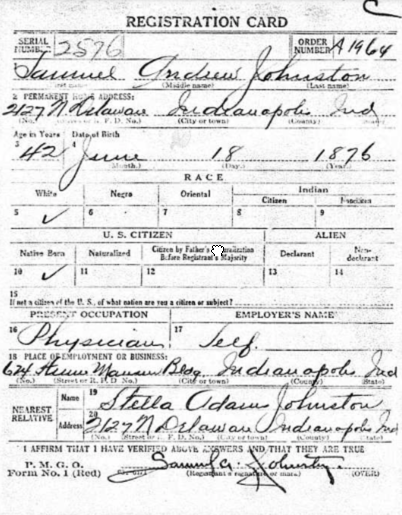 REGISTRATION CARD
SERIAL NUMBER 2576 ORDER NUMBER A1964
Samuel Andrew Johnston
(First name) (Middle name) (Last name)
2 PERMANENT HOME ADDRESS:
2127 N Delaware Indianapolis Ind
(No.) (Street or R. F. D. No.) (City or town) (County) (State)
Age in Years Date of Birth
3 42 4 June 18 1876
(Month.) (Day.) (Year.)
RACE
White Negro Oriental Indian
Citizen Noncitizen
5 ✓ 6 7 8 9
U. S. CITIZEN ALIEN
Native Born Naturalized Citizen by Father's Naturalization Before Registrant's Majority Declarant Non-declarant
10 ✓ 11 12 13 14
15
If not a citizen of the U. S., of what nation are you a citizen or subject?
PRESENT OCCUPATION EMPLOYER'S NAME
16 Physician 17 Self
18 PLACE OF EMPLOYMENT OR BUSINESS:
624 Bldg. Indianapolis Ind
(No.) (Street or R. F. D. No.) (City or town) (County) (State)
NEAREST RELATIVE Name 19 Stella Adams Johnston
Address 20 2127 N Delaware Indianapolis Ind
(No.) (Street or R. F. D. No.) (City or town) (County) (State)
I AFFIRM THAT I HAVE VERIFIED ABOVE ANSWERS AND THAT THEY ARE TRUE
P. M. G. O.
Form No. 1 (Red) Samuel A. Johnston
(Registrant's signature or mark.) (OVER)